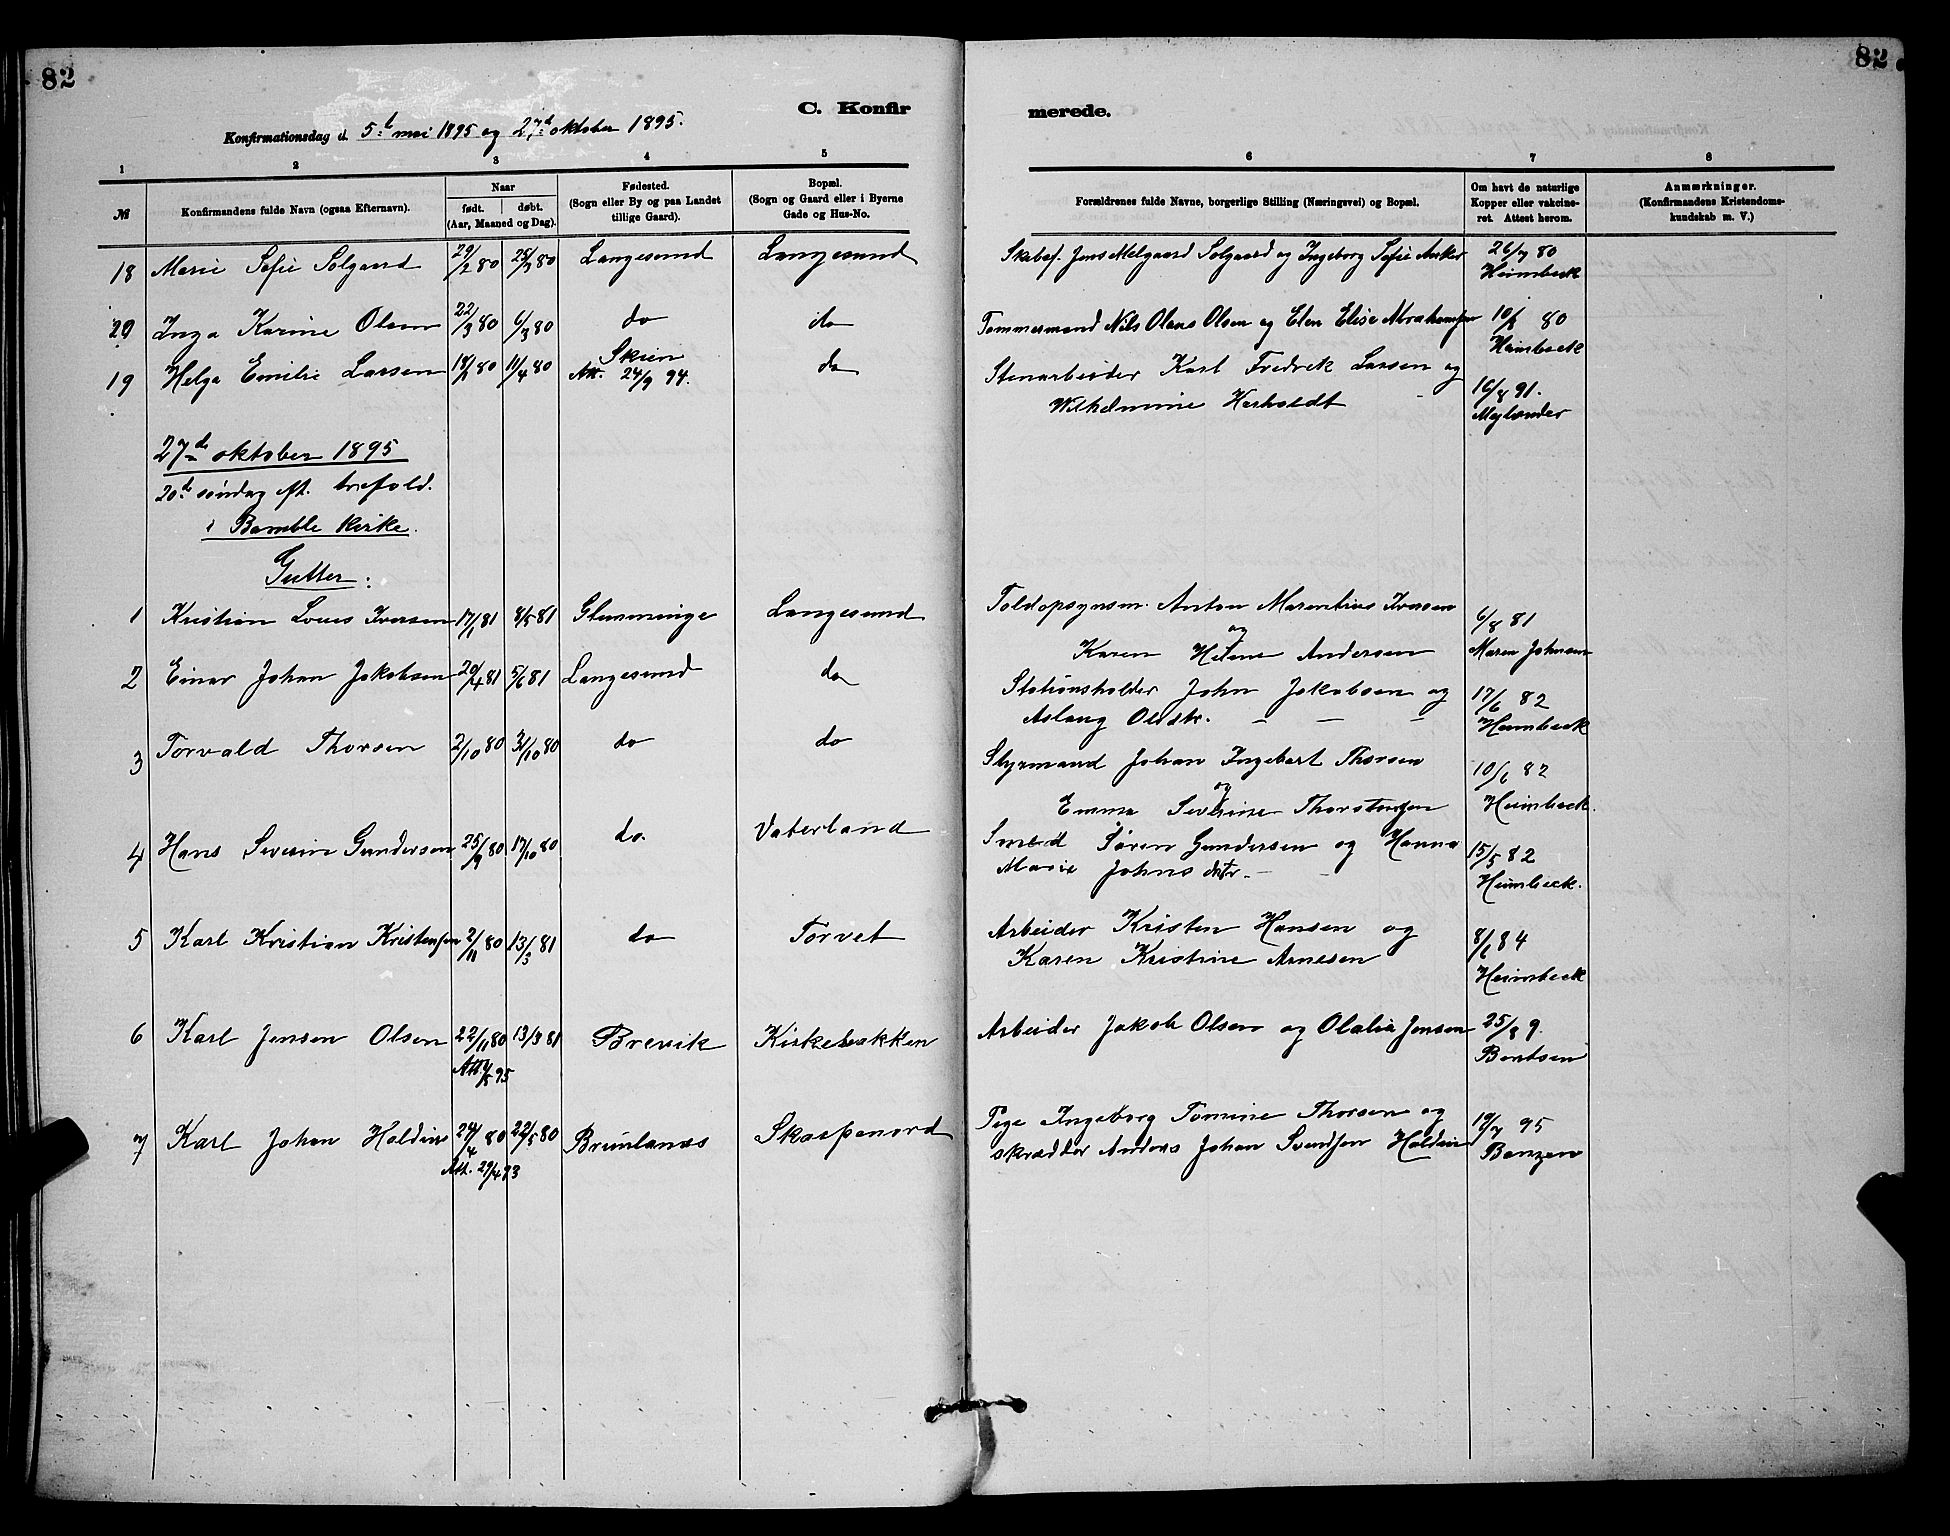 82
82
C. Konfirmerede.
Konfirmationsdag d. 5te mai 1895 og 27de oktober 1895.
1 2 3 4 5 6 7 8
№
Konfirmandens fulde Navn (ogsaa Efternavn).
Naar
født. døbt.
(Aar, Maaned og Dag).
Fødested.
(Sogn eller By og paa Landet
tillige Gaard).
Bopæl.
(Sogn og Gaard eller i Byerne
Gade og Hus-No.
Forældrenes fulde Navne, borgerlige Stilling (Næringsvei) og Bopæl.
Om havt de naturlige
Kopper eller vakcine-
ret. Attest herom.
Anmærkninger.
(Konfirmandens Kristendoms-
kundskab m. V.)
18 Marie Sofie Solgaard 29/2 80 28/3 80 Langesund Langesund Skibsf. Jens Melgaard Solgaard og Ingeborg Sofie Anker 26/7 80
Heimbeck
20 Inga Karine Olsen 22/3 80 6/3 80 do do Tømmermand Nils Olaus Olsen og Elen Elise Abrahamsen 10/8 80
Heimbeck
19 Helga Emilie Larsen 18/1 80 11/4 80 Skien do Stenarbeider Karl Fredrik Larsen og
Att. 24/9 94.
Wilhelmine Herholdt 16/8 91.
Mylander
27de oktober 1895
20de søndag eft. trefold.
i Bamble kirke.
Gutter:
1 Kristian Louis Iversen 17/1 81 8/5 81 Glemminge Langesund Toldopsynsm. Anton Marentius Iversen
og
Karen Helene Andersen 6/8 81
Maren Johnsen
2 Einar Johan Jakobsen 20/4 81 5/6 81 Langesund do Stationsholder John Jakobsen og
Aslaug Olsdtr. 17/6 82
Heimbeck
3 Torvald Thorsen 2/10 80 31/10 80 do do Styrmand Johan Ingebert Thorsen
og
Emma Severine Thorstensen 10/6 82
Heimbeck.
4 Hans Severin Gundersen 25/9 80 17/10 80 do. Vaterland Smed Søren Gundersen og Hanna
Marie Johnsdatr. 15/5 82
Heimbeck.
5 Karl Kristian Kristensen 2/11 80 13/3 81 do Torvet Arbeider Kristen Hansen og
Karen Kristine Arnesen 8/6 84
Heimbeck
6 Karl Jensen Olsen 22/11 80 13/3 81 Brevik Kirkebakken Arbeider Jakob Olsen og Olalia Jensen 25/8 9.
Bentsen
7 Karl Johan Haldin 24/4 80 22/5 80 Brunlanæs Skaspenord Pige Ingeborg Tomine Thorsen og
Att. 29/4 93
skrædder Anders Johan Svendsen Haldin 19/7 95
Benzen